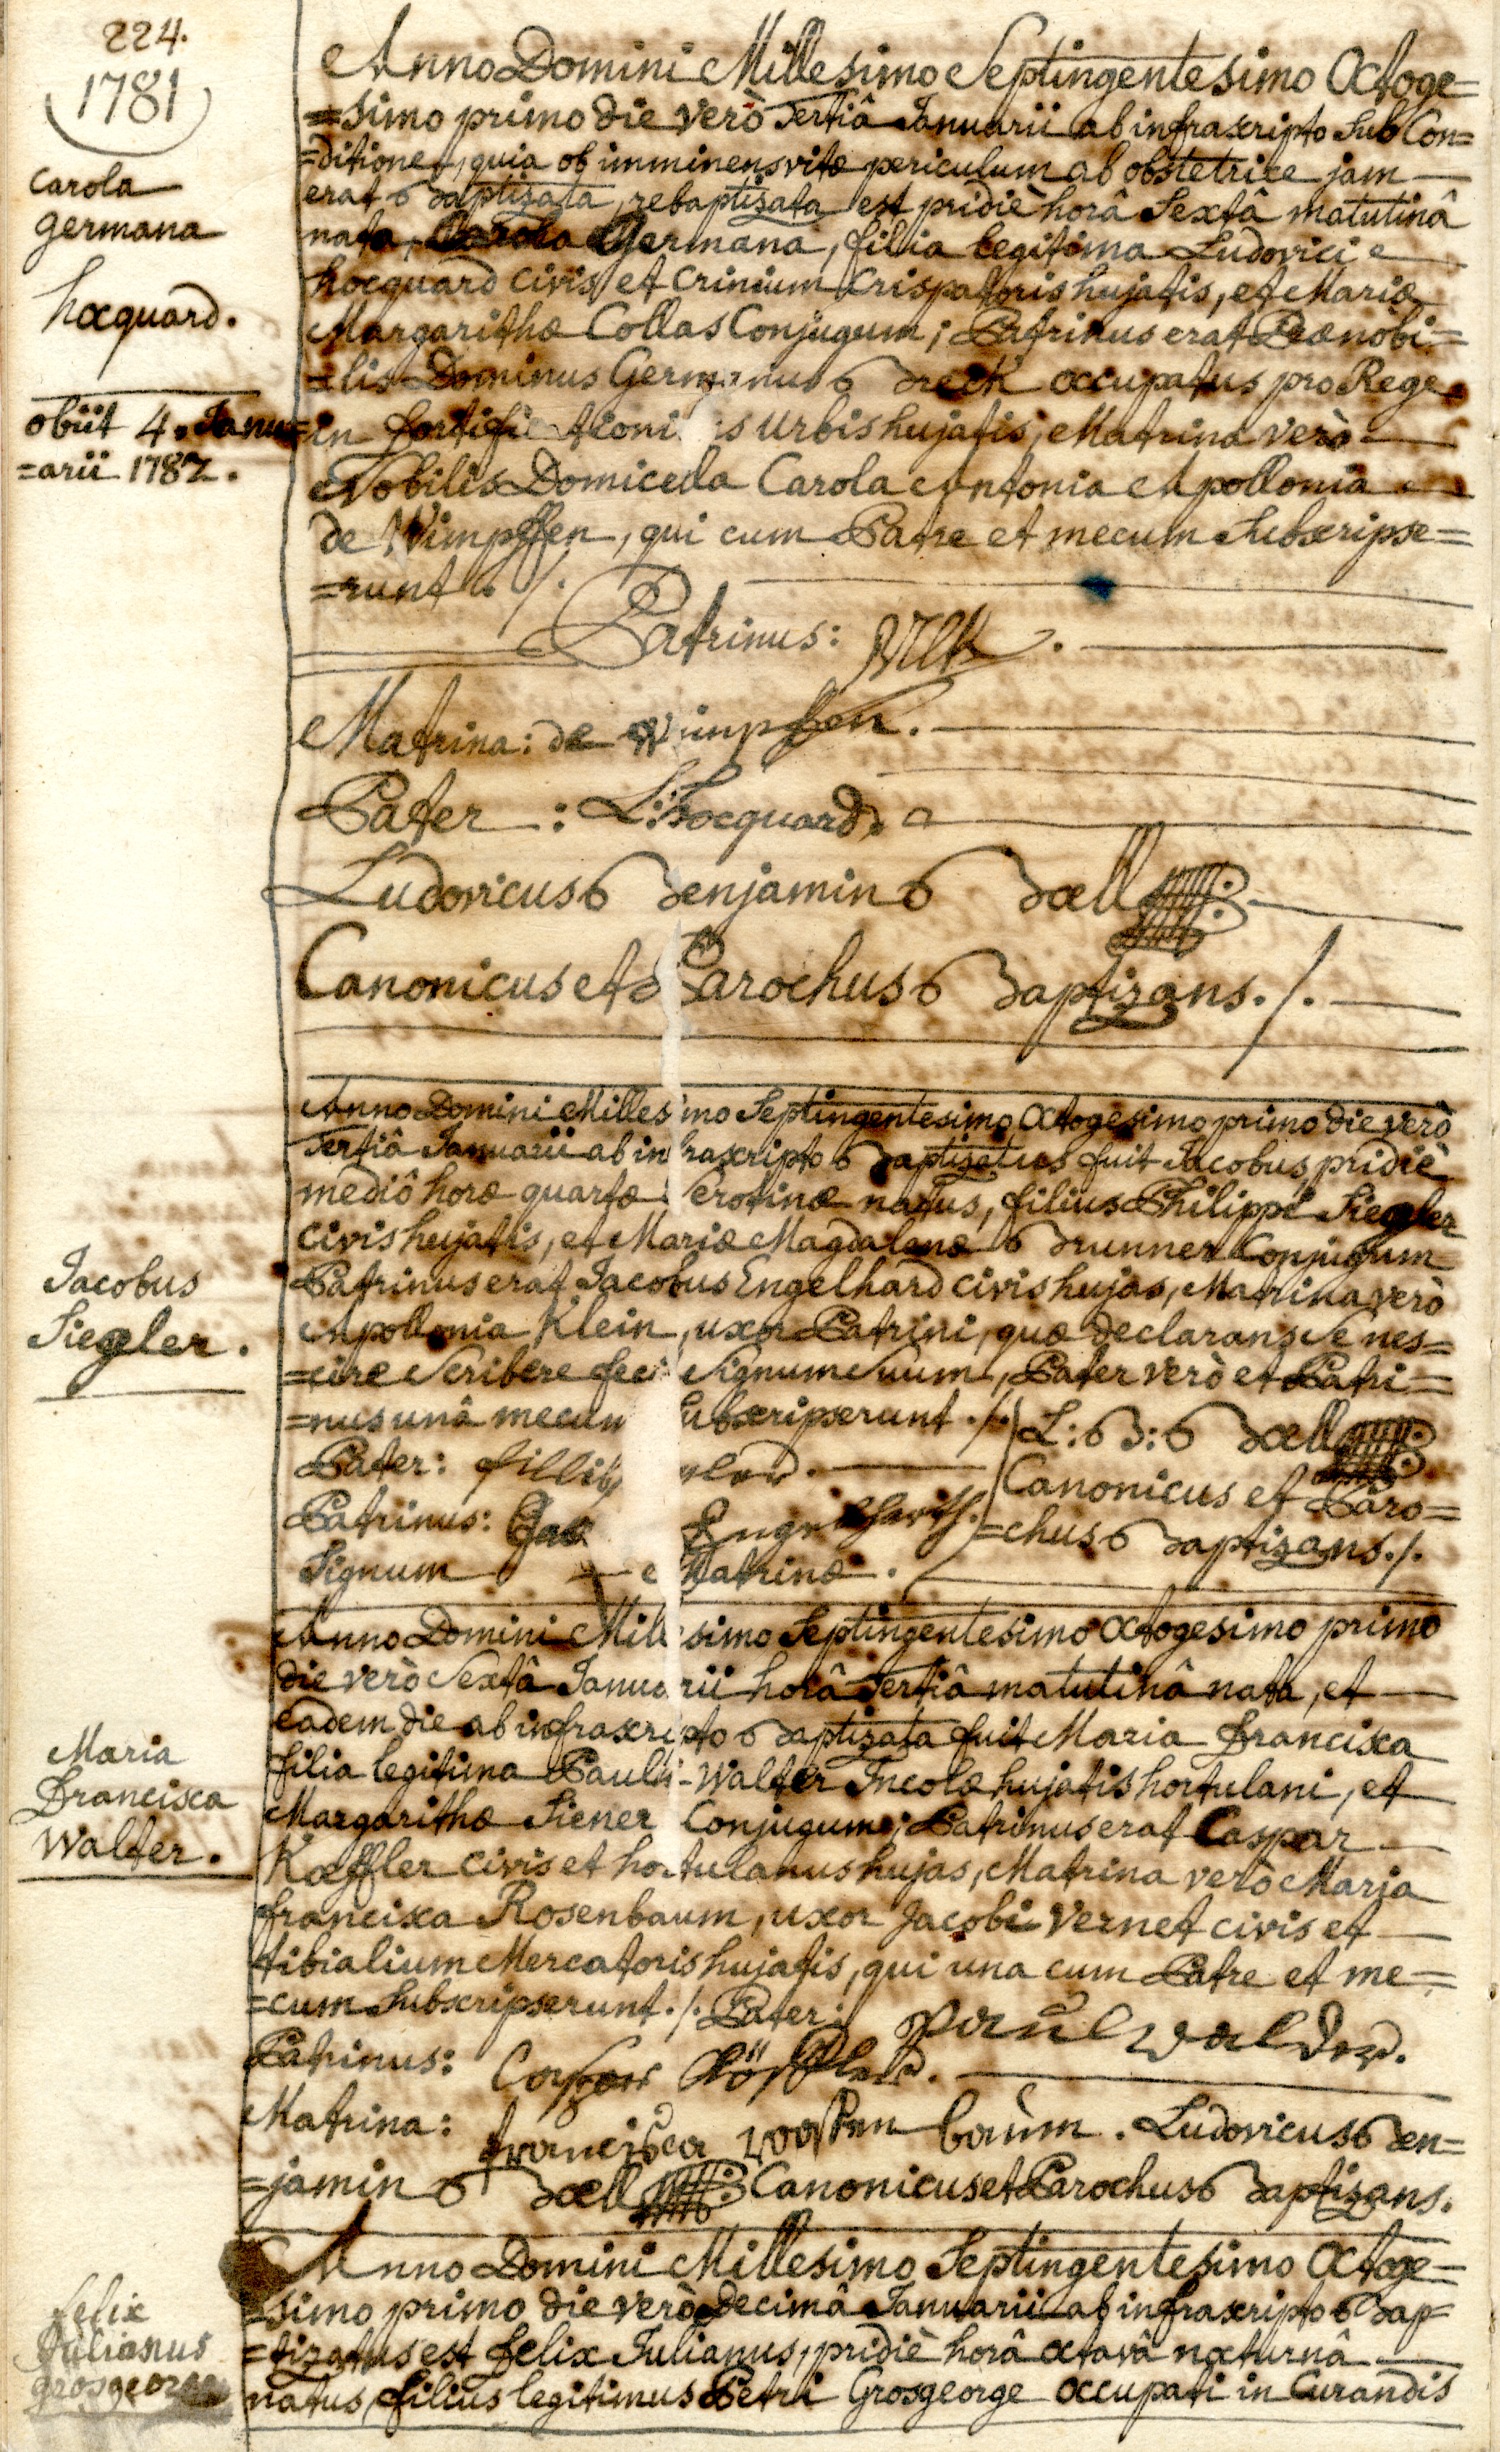 224.
1781
Carola
Germana
hocquard.
obiit 4. Janu=
=arii 1782.
Anno Domini Millesimo Septingentesimo Octoge=
=simo primo die verò tertiâ Januarii ab infrascripto sub Con=
=ditione, quia ob imminens vitæ periculum ab obstetrice jam
erat Baptizata, rebaptizata est pridiè horâ Sextâ matutinâ
nata, Carola Germana, filia legitima Ludovici
hocquard civis et Crinium Crispatoris hujatis, et Mariæ
Margarithæ Collas Conjugum; Patrinus erat Prænobi=
=lis Dominus Germanus Breck occupatus pro Rege
in fortificationibus urbis hujatis, Matrina verò
Nobilis Domicella Carola Antonia Apollonia
de Wimpffen, qui cum Patre et mecum Subscripse=
=runt ./.
Patrinus:
Matrina: de Wimpffen.
Pater : L: hocquard.
Ludovicus Benjamin Bœll
Canonicus et Parochus Baptizans ./.
Jacobus
Siegler.
Anno Domini Millesimo Septingentesimo Octogesimo primo die verò
tertiâ Januarii ab infrascripto Baptizatus fuit Jacobus pridiè
mediô horæ quartæ Serotinæ natus, filius Philippi Siegler
civis hujatis, et Mariæ Magdalenæ Brunner Conjugum
Patrinus erat Jacobus Engelhard civis hujas, Matrina verò
Apollonia Klein, uxor Patrini, quæ declarans se nes=
=cire Scribere feci Signum Suum, Pater verò et Patri=
=nus unâ mecum Subscripserunt ./.
Pater:
Patrinus:
Signum Matrinæ.
L: B: Bœll
Canonicus et Paro=
=chus Baptizans ./.
Maria
Francisca
Walter.
Anno Domini Millesimo Septingentesimo Octogesimo primo
die verò Sextâ Januarii horâ tertiâ matutinâ nata, et
eadem die ab infrascripto Baptizata fuit Maria Francisca
filia legitima Pauli Walter Incolæ hujatis hortulani, et
Margarithæ Siener Conjugum; Patrinus erat Caspar
Kœffler civis et hortulanus hujas, Matrina verò Maria
francisca Rosenbaum, uxor Jacobi Vernet civis et
tibialium Mercatoris hujatis, qui una cum Patre et me=
=cum Subscripserunt ./. Pater: Paul
Patrinus:
Matrina: francisca baum. Ludovicus Ben=
=jamin Bœll Canonicus et Parochus Baptizans.
felix
Julianus
grosgeorge
Anno Domini Millesimo Septingentesimo Octoge=
=simo primo die verò decimâ Januarii ab infrascripto Bap=
=tizatus est felix Julianus, pridiè horâ octavâ nocturnâ
natus, filius legitimus Petri Grosgeorge occupati in Curandis